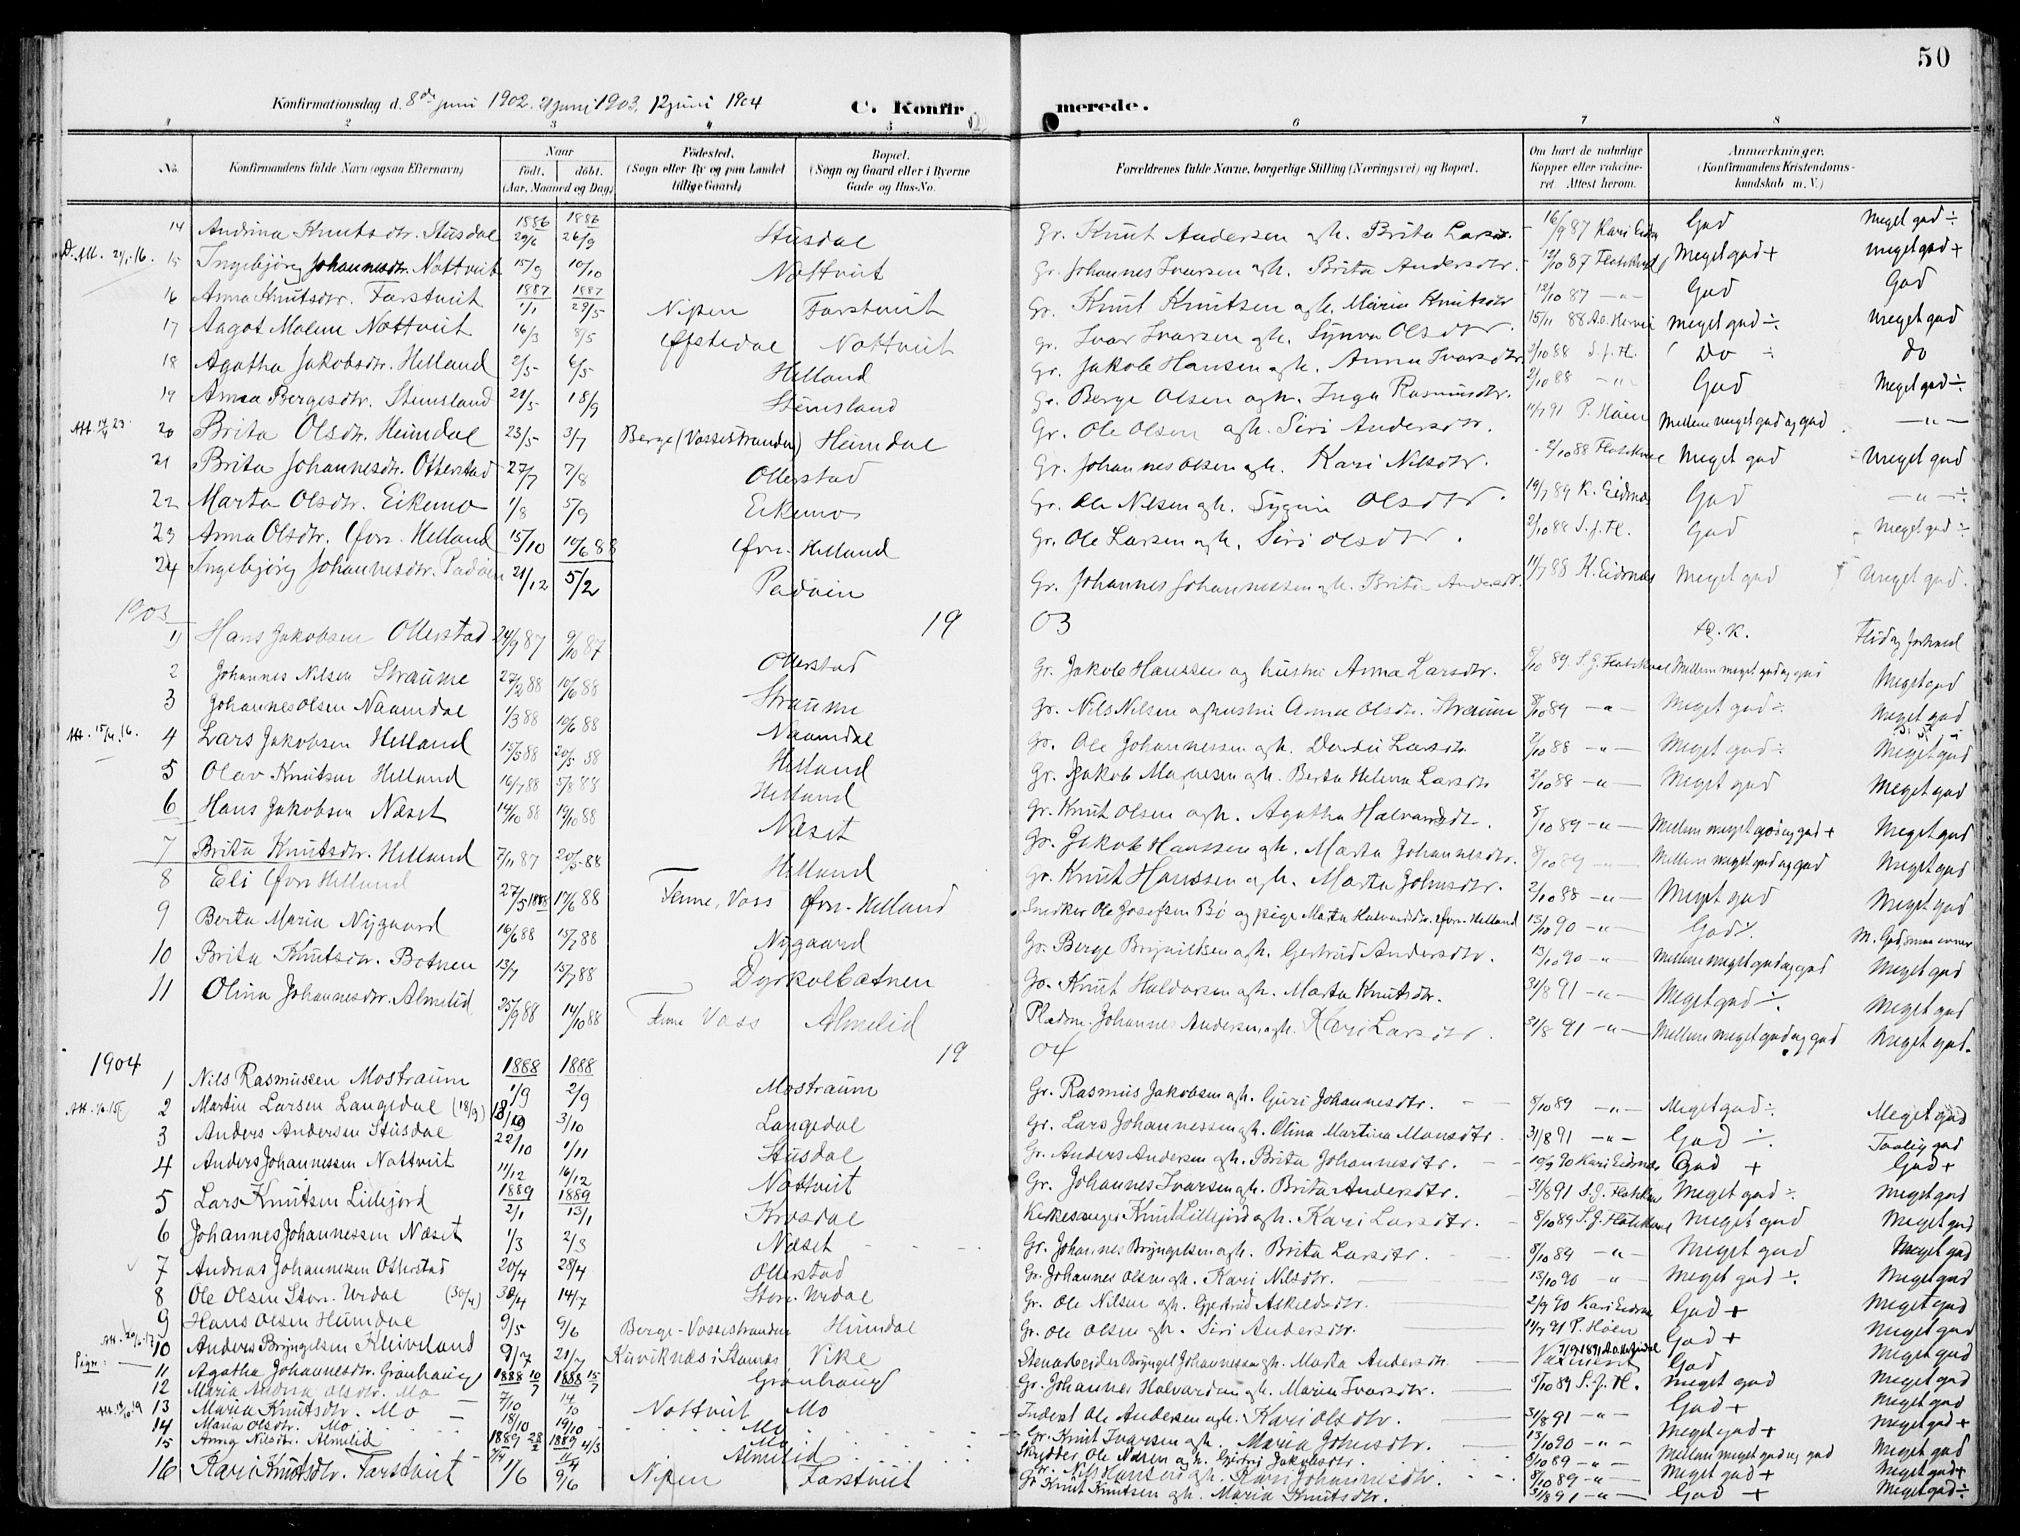 50
Konfirmationsdag d. 8de juni 1902. 21 juni 1903. 12 juni 1904 C. Konfirmerede.
1 2 3 4 5 6 7 8
No. Konfirmandens fulde Navn (ogsaa Efternavn) Naar født. døbt. (Aar, Maaned og Dag) Fødested. (Sogn eller By og paa Landet tillige Gaard) Bopæl. (Sogn og Gaard eller i Byerne Gade og Hus-No. Forældrenes fulde Navne, borgerlige Stilling (Næringsvei) og Bopæl. Om havt de naturlige Kopper eller vakcineret. Attest herom. Anmærkninger. (Konfirmandens Kristendomskundskab m. V.)
14 Andrina Knutsdtr. Stusdal 1886 29/6 1886 26/9 Stusdal Gr. Knut Andersen og h. Brita Larsdtr. 16/9 87 Kari Eidnes God Meget god ÷
15 Ingebjørg Johannesdtr. Nottveit 15/9 10/10 Nottveit Gr. Johannes Ivarsen og h. Brita Andersdtr. 12/10 87 Meget god + Meget god +
16 Anna Knutsdtr. Farstveit 1887 1/1 1887 29/5 Nipen Farstveit Gr. Knut Knutsen og h. Maria Knutsdtr 12/10 87 -"- God God
17 Aagot Malene Nottveit 16/3 8/5 Øfstedal Nottveit Gr. Ivar Ivarsen og h. Synva Olsdtr. 15/11 88 Meget god ÷ Meget god
18 Agatha Jakobsdtr. Helland 2/5 6/5 Helland Gr. Jakob Hansen og h. Anna Ivarsdtr. 2/10 88 S. J. Fl. Do ÷ do
19 Anna Bergesdtr. Stemsland 21/5 18/9 Stemsland Gr. Berge Olsen og h. Inga Rasmusdtr. 2/10 88 -"- God Meget god ÷
20 Brita Olsdtr. Heimdal 23/5 3/7 Berge (Vossestranden) Heimdal Gr. Ole Olsen og h. Siri Andersdtr. 11/7 91 P. Höen Mellem meget god og god -"-
21 Brita Johannesdtr. Otterstad 27/7 7/8 Otterstad Gr. Johannes Olsen og h. Kari Nilsdtr. 2/10 88 Meget god Meget god
22 Marta Olsdtr. Eikemo 1/8 5/9 Eikemo Gr. Ole Nilsen og h. Olsdtr. 19/7 89 K. Eidnes God -"- ÷
23 Anna Olsdtr. Øvr. Helland 15/10 10/6 88 Øvr. Helland Gr. Ole Larsen og h. Siri Olsdtr. 2/10 88 S. J. Fl. God Meget god ÷
24 Ingebjørg Johannesdtr. Padøen 21/12 5/2 Padøin Gr. Johannes Johannessen og h. Brita Andersdtr. 14/7 88 K. Eidnes Meget god Meget god.
1903 19 03 Flid og forhold
1) Hans Jakobsen Otterstad 24/9 87 9/10 87 Otterstad Gr. Jakob Hanssen og hustru Anna Larsdtr. 8/10 89 S. J. Flatekval Mellem meget god og god Meget god
2 Johannes Nilsen Straume 27/2 88 10/6 88 Straume Gr. Nils Nilsen og hustru Anna Olsdtr. Straume 8/10 89 -"- Meget god ÷ Meget god
3 Johannes Olsen Naamdal 1/3 88 10/6 88 Naamdal Gr. Ole Johannessen og h. Larsdtr 2/10 88 -"- Meget god ÷ Meget god
4 Lars Jakobsen Helland 15/5 88 20/5 88 Helland Gr. Jakob Magnesen og h. Berta Helena Larsdtr 2/10 88 -"- Meget god Meget god
5 Olav Knutsen Helland 16/7 88 5/8 88 Helland Gr. Knut Olsen og h. Agatha Halvardsdtr. 8/10 89 -"- Mellem meget god og god + Meget god
6 Hans Jakobsen Næset 14/10 88 19/10 88 Næset Gr. Jakob Hanssen og h. Marta Johannesdtr. 8/10 89 -"- Mellem meget god og god Meget god
7 Brita Knutsdtr. Helland 7/11 87 20/5 88 Helland Gr. Knut Hanssen og h. Marta Johnsdtr. 2/10 88 -"- Meget god Meget god
8 Eli Øvr. Helland 27/5 1888 17/6 88 Fenne, Voss Øvr. Helland Snedker Ole Josefsen Bø og pige Marta Halvardsdtr. Øvr. Helland 13/10 90 -"- God ÷ M. God, smaa evner
9 Berta Maria Nygaard 16/6 88 15/7 88 Nygaard Gr. Berge Brynildsen og h. Gertrud Andersdtr. 13/10 90 -"- Mellem meget god og god Meget god
10 Brita Knutsdtr. Botnen 13/7 15/7 88 Dyrkolbotnen Gr. Knut Haldorsen og h. Marta Knutsdtr. 31/8 91 -"- Meget god ÷ Meget god
11 Olina Johannesdtr. Almelid 25/9 88 14/10 88 Fenne Voss Almelid Pladsm. Johannes Andersen og h. Kari Larsdtr. 31/8 91 -"- Mellem meget god og god Meget god.
1904 19 04
1 Nils Rasmussen Mostraum 1888 1/9 1888 2/9 Mostraum Gr. Rasmus Jakobsen og h. Guri Johannesdtr. 8/10 89 -"- Meget god ÷ Meget god
2 Martin Larsen Langedal (18/9) 3/10 Langedal Gr. Lars Johannessen og h. Olina Martina Monsdtr. 31/8 91 -"- God ÷ Taalig god
3 Anders Andersen Stusdal 22/10 1/11 Stusdal Gr. Anders Andersen og h. Brita Johannesdtr. 19/9 90 Kari Eidnes God + God +
4 Anders Johannessen Nottveit 11/12 16/12 Nottveit Gr. Johannes Ivarsen og h. Brita Andersdtr. 31/8 91 S. J. Flatekval Meget god ÷ Meget god
5 Lars Knutsen Lillejord 1889 2/1 1889 13/1 Krosdal Kirkesanger Knut Lillejord og h. Kari Larsdtr. 8/10 89 S. J. Flatekval Meget god Meget god
6 Johannes Johannessen Næset 1/3 2/3 Næset Gr. Johannes Bryngelsen og h. Brita Larsdtr. 8/10 89 -"- Meget god Meget god
7 Andreas Johannessen Otterstad 20/4 28/4 Otterstad Gr. Johannes Olsen og h. Kari Nilsdtr. 13/10 90 -"- Meget god ÷ Meget god
8 Ole Olsen Stor. Urdal (30/4) 30/4 14/7 Stor. Urdal Gr. Ole Nilsen og h. Gjertrud Askildsdtr. 2/9 90 Kari Eidnes God + Meget god
9 Hans Olsen Heimdal 9/5 9/6 Berge-Vossestranden Heimdal Gr. Ole Olsen og h. Siri Andersdtr. 11/7 91 P. Höen God + Meget god
10 Anders Bryngelsen Kleiveland 9/7 21/7 Kuviknæs i Stamnes Vike Stenarbeider Bryngel Johannessen og h. Marta Andersdtr. God Meget god
11 Agatha Johannesdtr. Grønhaug 1888 10/7 1888 15/7 Grønhaug Gr. Johannes Halvardsen og h. Maria Ivarsdtr. 8/10 89 S. J. Fl. Meget god Meget god
12 Maria Andrea Olsdtr. Mo 7/10 14/10 Nottveit Mo Inderst Ole Andersen og h. Kari Olsdtr. 31/8 91 -"- God + Meget god
13 Maria Knutsdtr. Mo 18/10 19/10 Mo Gr. Knut Ivarsen og h. Maria Johnsdtr. 13/10 90 -"- Meget god + Meget god +
14 Maria Olsdtr. Mo 1889 28/2 1889 4/3 Mo Skrædder Ole Jakobsdtr. 8/10 89 -"- Mellem meget god og god Meget god
15 Anna Nilsdtr. Almelid Almelid Gr. Nils Hansen og h. Kari Johannesdtr. 8/10 89 -"- Meget god + Meget god +
16 Kari Knutsdtr. Farstveit 1/6 9/6 Nipen Farstveit Gr. Knut Knutsen og h. Maria Knutsdtr. 31/8 91 -"- God + Meget god ÷